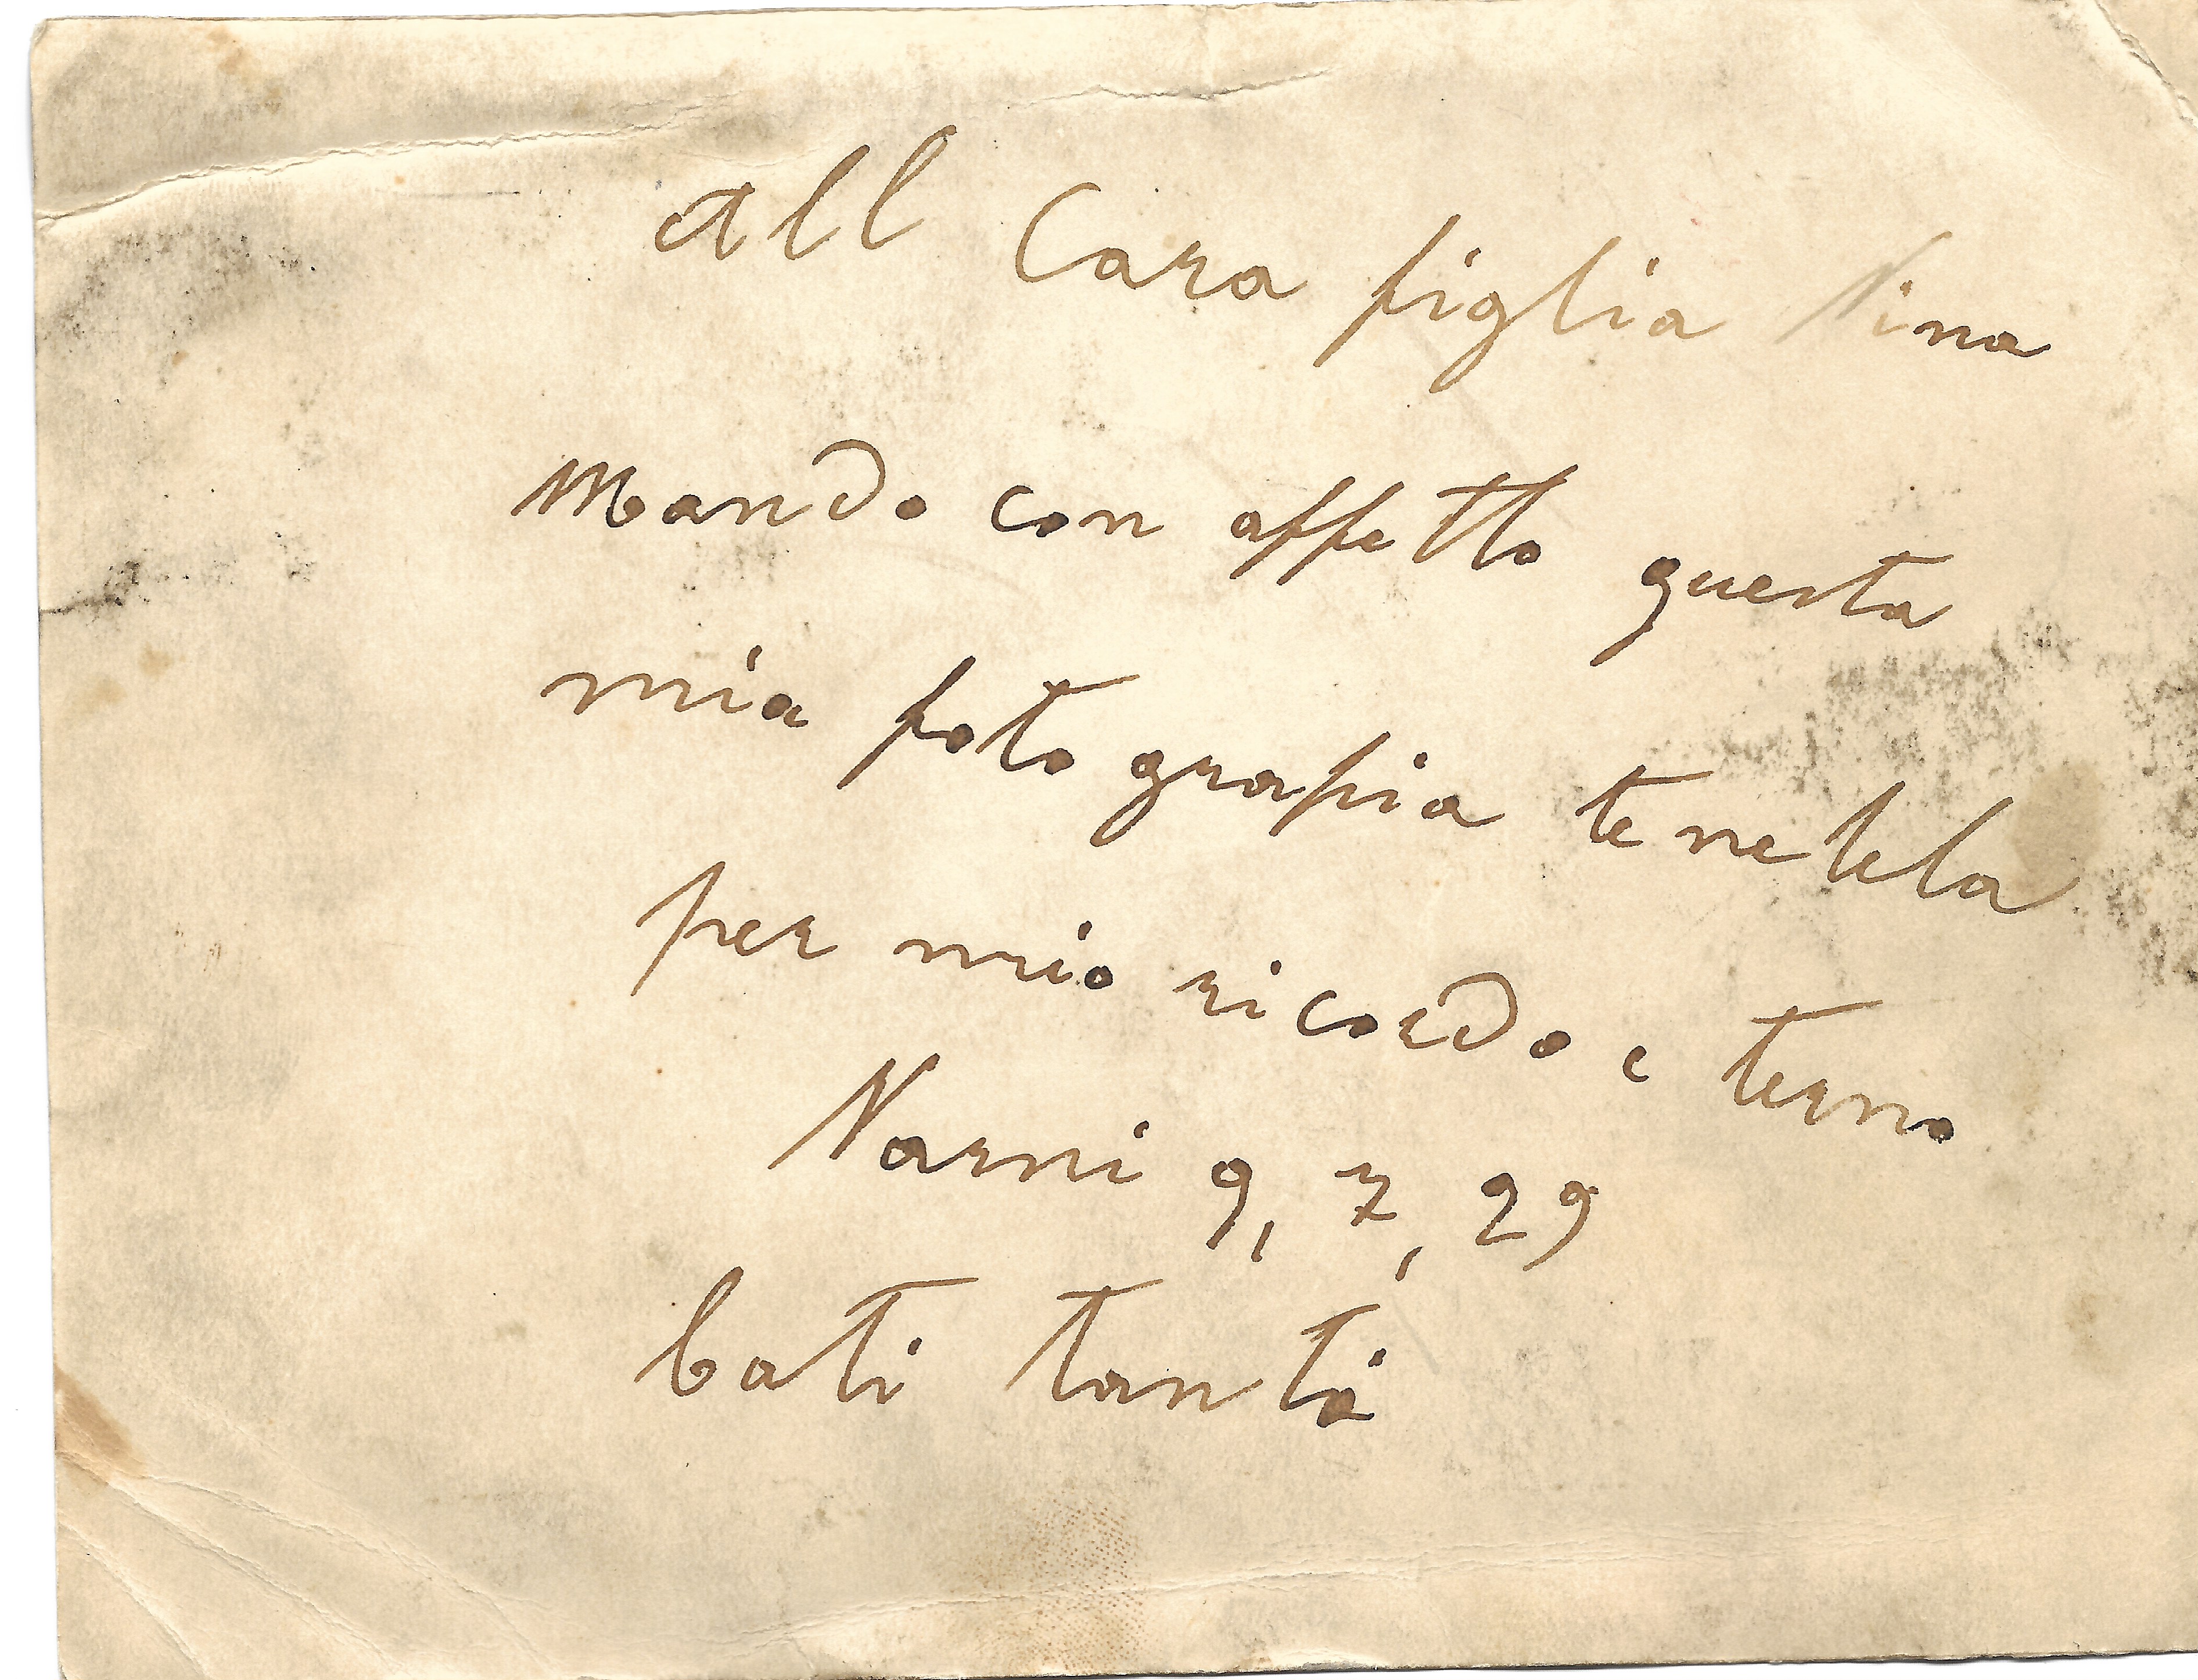 All Cara figlia Nina
Mando con affetto questa
mia foto grafia te ne tela
per mio ricordo e terno
Narni 9, 7, 29
bati tanti